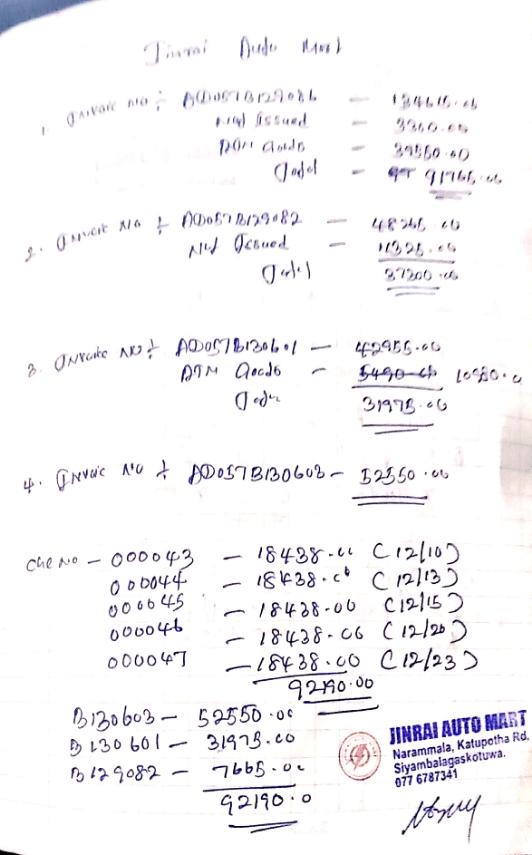 Jinrai Auto Mart
1. Invoice No :- AD057B129086 - 134615.00
Not Issued - 3300.00
RTN Goods - 39550.00
Total - 91765.00
2. Invoice No :- AD057B129082 - 48265.00
Not Issued - 11325.00
Total 37200.00
3. Invoice No :- AD057B130601 - 42955.00
RTN Goods - 5490.00 10980.0
Total 31975.00
4. Invoic No :- AD057B130603 - 52550.00
Che No - 000043 - 18438.00 (12/10)
000044 - 18438.00 (12/13)
000045 - 18438.00 (12/15)
000046 - 18438.00 (12/20)
000047 - 18438.00 (12/23)
92190.00
B130603 - 52550.00
B130601 - 31975.00
B129082 - 7665.00
92190.0
JINRAI AUTO MART
Narammala, Katupotha Rd,
Siyambalagaskotuwa.
077 6787341